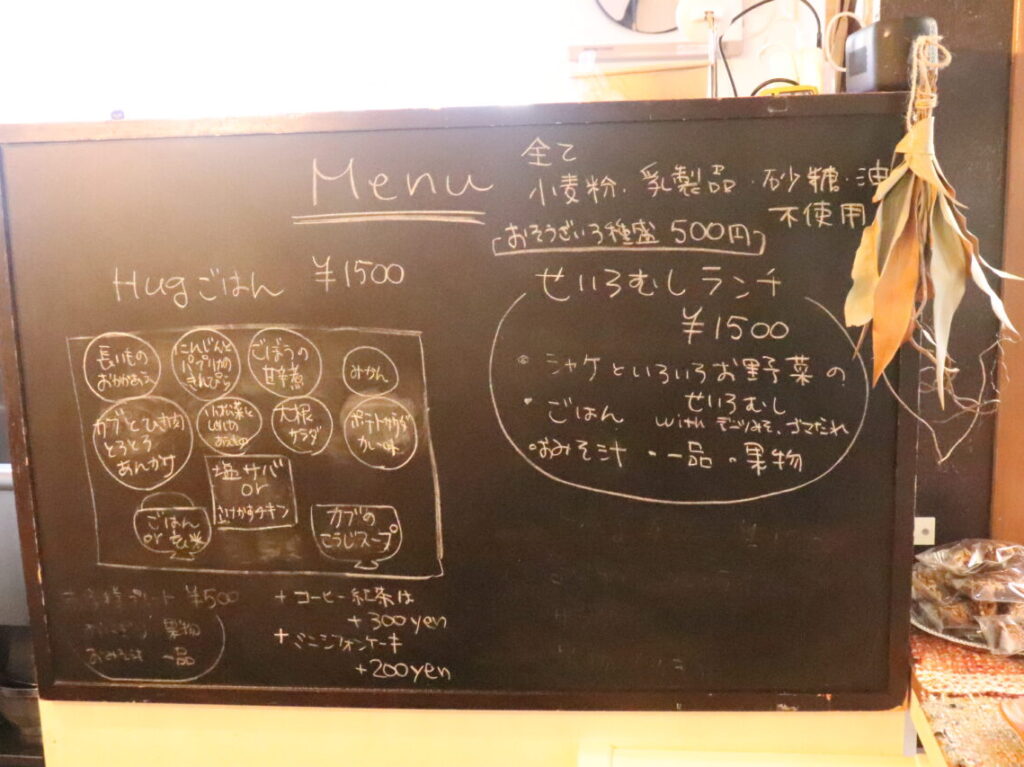 Menu
全て
小麦粉・乳製品・砂糖・油
不使用
おそうざい3種盛 500円
Hugごはん ¥1500
長いもの
おかかあえ
にんじんと
パプリカの
きんぴら
ごぼうの
甘辛煮
みかん
カブとひき肉
とろとろ
あんかけ
大根
サラダ
ポテトサラダ
カレー味
塩サバ
or
さけかすチキン
ごはん
or 玄米
カブの
こうじスープ
¥500
果物
おみそ汁 一品
+コーヒー紅茶は
+300yen
+ミニシフォンケーキ
+200yen
せいろむしランチ
¥1500
シャケといろいろお野菜の
せいろむし
・ごはん with デーツみそ、ゴマだれ
・おみそ汁 ・一品 ・果物